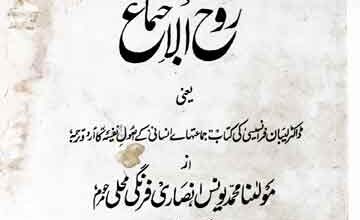 روح الاجتماع
یعنی
ڈاکٹر لیبان فرانسیسی کی کتاب جماعتہائے انسانی کے اصول نفسیہ کا اردو ترجمہ
از
مولٰنا محمد یونس انصاری فرنگی محلی مرحوم